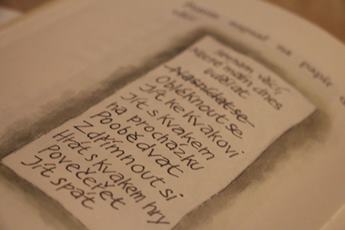 napsal na papír
Seznam věcí,
které mám dnes
udělat
Nasnídat se
Obléknout se
Jít ke Kvakovi
Jít s Kvakem
na procházku
Poobědvat
Zdřímnout si
Hrát s Kvakem hry
Povečeřet
Jít spát